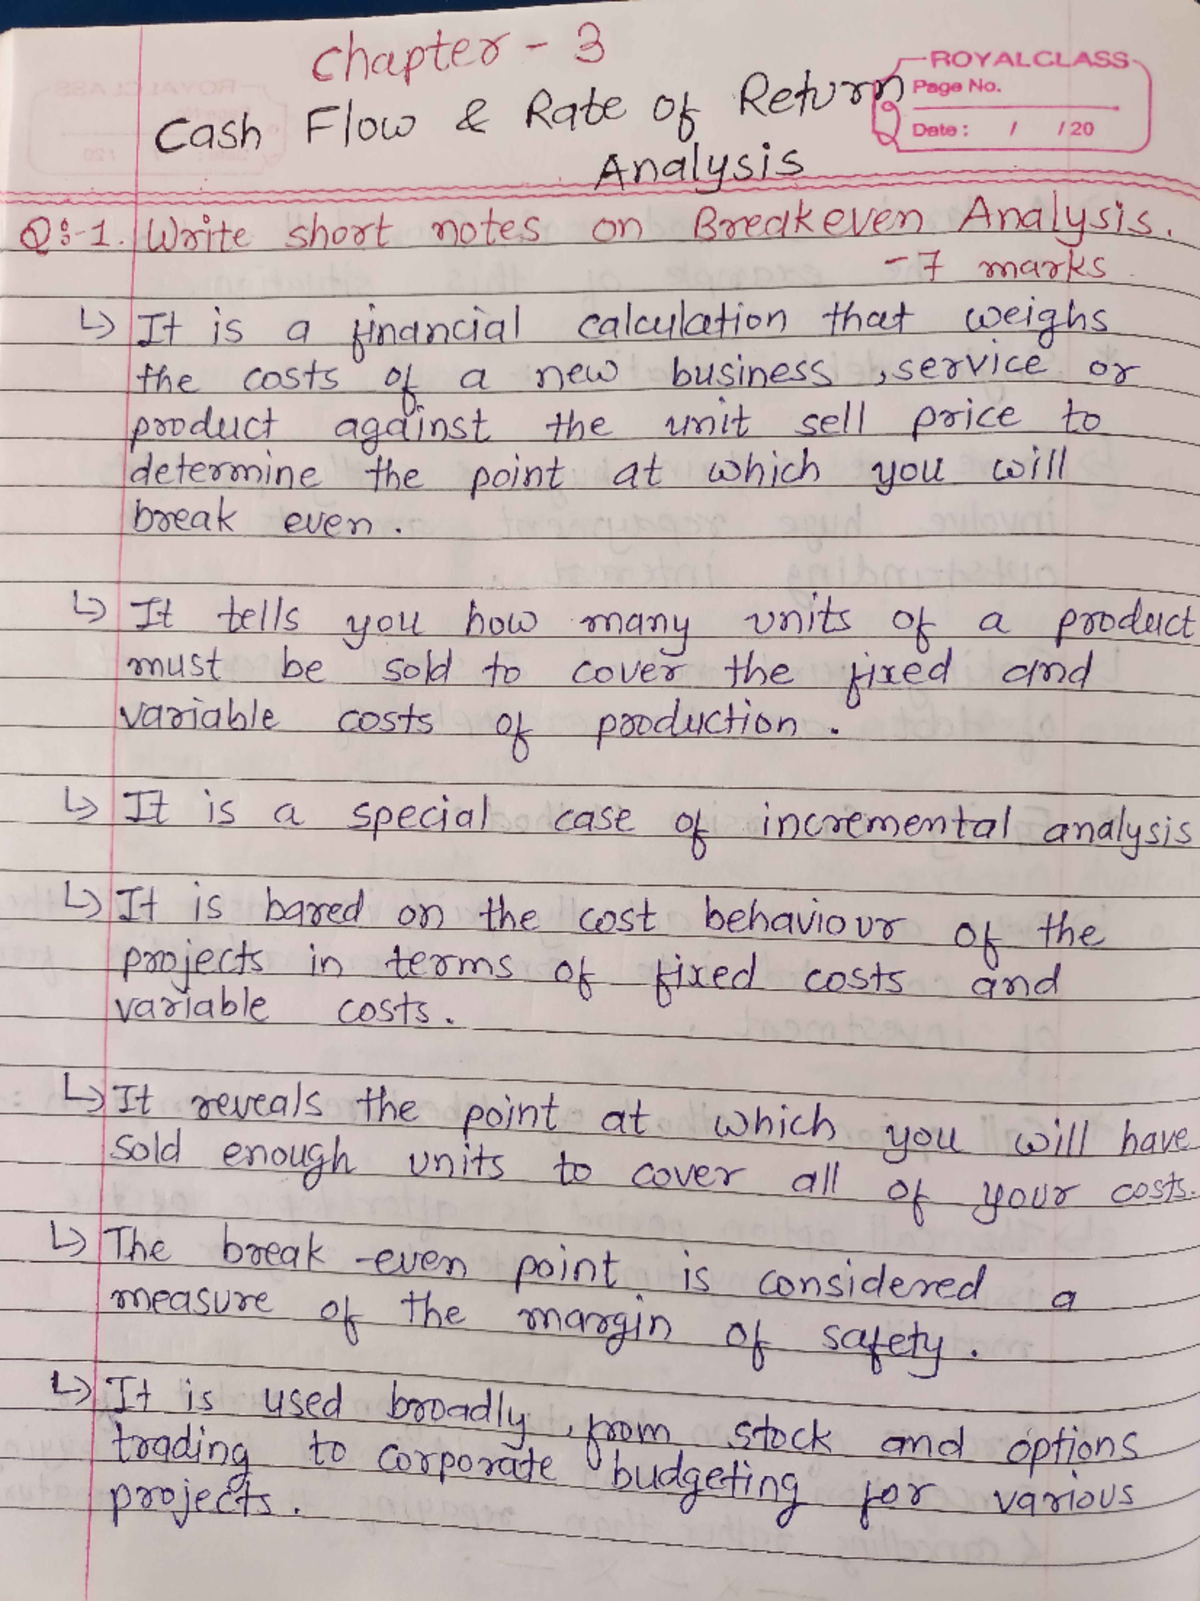 Chapter - 3
ROYALCLASS
Page No.
Date : / / 20
Cash Flow & Rate of Return
Analysis
Q:-1. Write short notes on Breakeven Analysis.
- 7 marks
↳ It is a financial calculation that weighs
the costs of a new business, service or
product against the unit sell price to
determine the point at which you will
break even.
↳ It tells you how many units of a product
must be sold to cover the fixed and
variable costs of production.
↳ It is a special case of incremental analysis
↳ It is bared on the cost behaviour of the
projects in terms of fixed costs and
variable costs.
↳ It reveals the point at which you will have
sold enough units to cover all of your costs.
↳ The break-even point is considered a
measure of the margin of safety.
↳ It is used broadly, from stock and options
trading to corporate budgeting for various
projects.